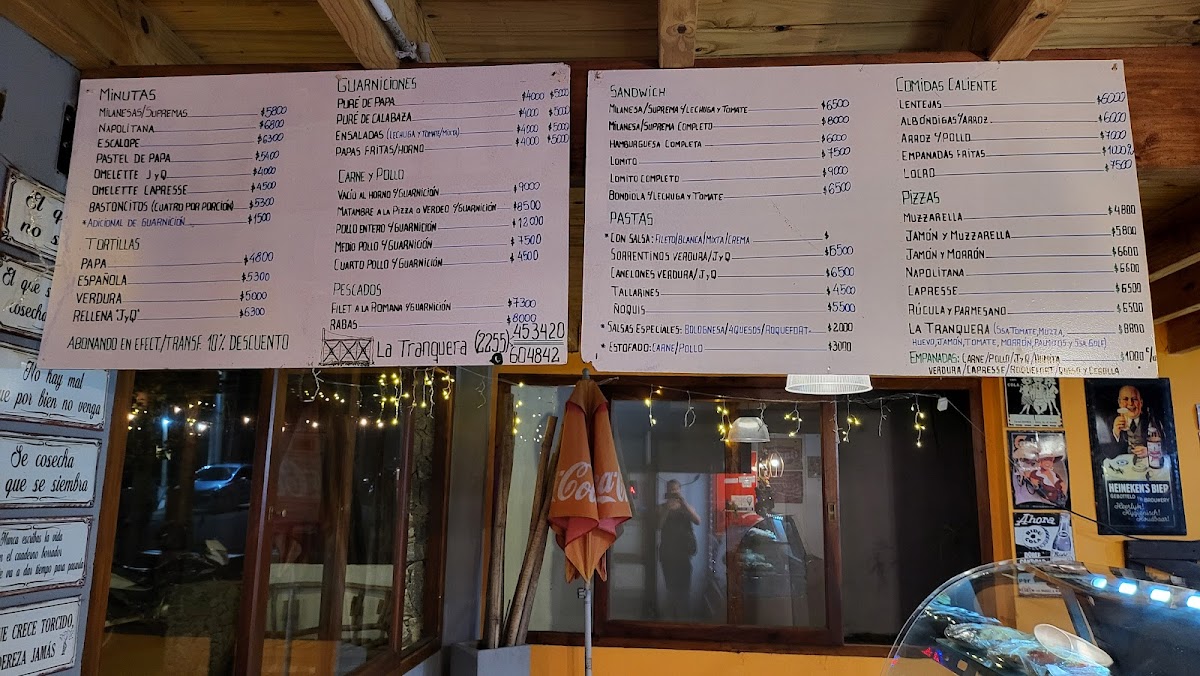 MINUTAS
MILANESAS/SUPREMAS $5800
NAPOLITANA $6800
ESCALOPE $6300
PASTEL DE PAPA $5400
OMELETTE J Y Q $4000
OMELETTE CAPRESSE $4500
BASTONCITOS (CUATRO POR PORCIÓN) $5300
*ADICIONAL DE GUARNICIÓN $1500
TORTILLAS
PAPA $4800
ESPAÑOLA $5300
VERDURA $5000
RELLENA "JYQ" $6300
ABONANDO EN EFECT/TRANSF 10% DESCUENTO
GUARNICIONES
PURÉ DE PAPA $4000 $5000
PURÉ DE CALABAZA $4000 $5000
ENSALADAS (LECHUGA Y TOMATE/MIXTA) $4000 $5000
PAPAS FRITAS/HORNO $4000 $5000
CARNE Y POLLO
VACÍO AL HORNO Y GUARNICIÓN $9000
MATAMBRE A LA PIZZA O VERDEO Y GUARNICIÓN $8500
POLLO ENTERO Y GUARNICIÓN $12000
MEDIO POLLO Y GUARNICIÓN $7500
CUARTO POLLO Y GUARNICIÓN $4500
PESCADOS
FILET A LA ROMANA Y GUARNICIÓN $7300
RABAS $8000
La Tranquera (2255) 453420
604842
SANDWICH
MILANESA/SUPREMA Y LECHUGA Y TOMATE $6500
MILANESA/SUPREMA COMPLETO $8000
HAMBURGUESA COMPLETA $6000
LOMITO $7500
LOMITO COMPLETO $9000
BONDIOLA Y LECHUGA Y TOMATE $6500
PASTAS
*CON SALSA: FILETO/BLANCA/MIXTA/CREMA $
SORRENTINOS VERDURA/JYQ $5500
CANELONES VERDURA/JYQ $6500
TALLARINES $4500
ÑOQUIS $5500
*SALSAS ESPECIALES: BOLOGNESA/4QUESOS/ROQUEFORT $2000
*ESTOFADO: CARNE/POLLO $3000
COMIDAS CALIENTE
LENTEJAS $6000
ALBÓNDIGAS Y ARROZ $6000
ARROZ Y POLLO $7000
EMPANADAS FRITAS $1000
LOCRO $7500
PIZZAS
MUZZARELLA $4800
JAMÓN Y MUZZARELLA $5800
JAMÓN Y MORRÓN $6600
NAPOLITANA $6600
CAPRESSE $6500
RÚCULA Y PARMESANO $6500
LA TRANQUERA (SSA TOMATE, MUZZA, $8800
HUEVO, JAMÓN, TOMATE, MORRÓN, PALMITOS Y SSA GOLF)
EMPANADAS: CARNE/POLLO/JYQ/HUMITA $1000 C/U
VERDURA/CAPRESSE/ROQUEFORT/QUESO Y CEBOLLA
El q
no s
El que s
cosecha
No hay mal
que por bien no venga
Se cosecha
que se siembra
Nunca escribas la vida
en el cuaderno borrador
no va a dar tiempo para pasarla
UE CRECE TORCIDO,
DEREZA JAMÁS
Coca-Cola
HEINEKEN'S BIER
GEBOTTELD BROUWERY
Heerlijk!
Hygiënisch!
Houdbaar!
Ahora
BIDU
COLA